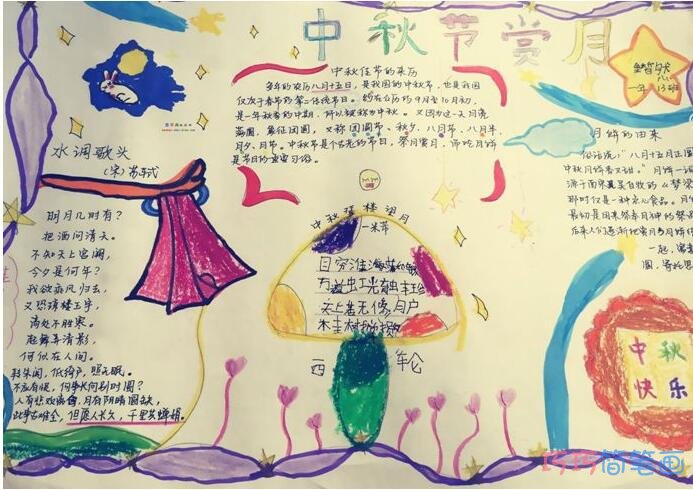 中秋节赏月
一年13班
中秋佳节的来历
每年的农历八月十五日，是我国的中秋节，也是我国
仅次于春节的第二传统节日。约在公历的9月至10月初，
是一年秋季的中期，所以被称为中秋。又因为这一天月亮
满圆，象征团圆，又称团圆节、秋夕、八月节、八月半、
月夕、月节。中秋节是个古老的节日，祭月赏月，吃月饼
是节日的重要习俗。
水调歌头
（宋）苏轼
明月几时有？
把酒问青天。
不知天上宫阙，
今夕是何年？
我欲乘风归去，
又恐琼楼玉宇，
高处不胜寒。
起舞弄清影，
何似在人间。
转朱阁，低绮户，照无眠。
不应有恨，何事长向别时圆？
人有悲欢离合，月有阴晴圆缺，
此事古难全，但愿人长久，千里共婵娟。
中秋登楼望月
米芾
目穷淮海
天上若无修月户
西 轮
月饼的由来
俗话说："八月十五月正圆
中秋月饼香又甜。"月饼一词
源于南宋吴自牧的《梦梁
那时仅是一种点心食品。月
最初是用来祭奉月神的祭
后来人们逐渐把赏月与月饼
一起，寓
圆，寄托思
中秋
快乐
巧巧简笔画